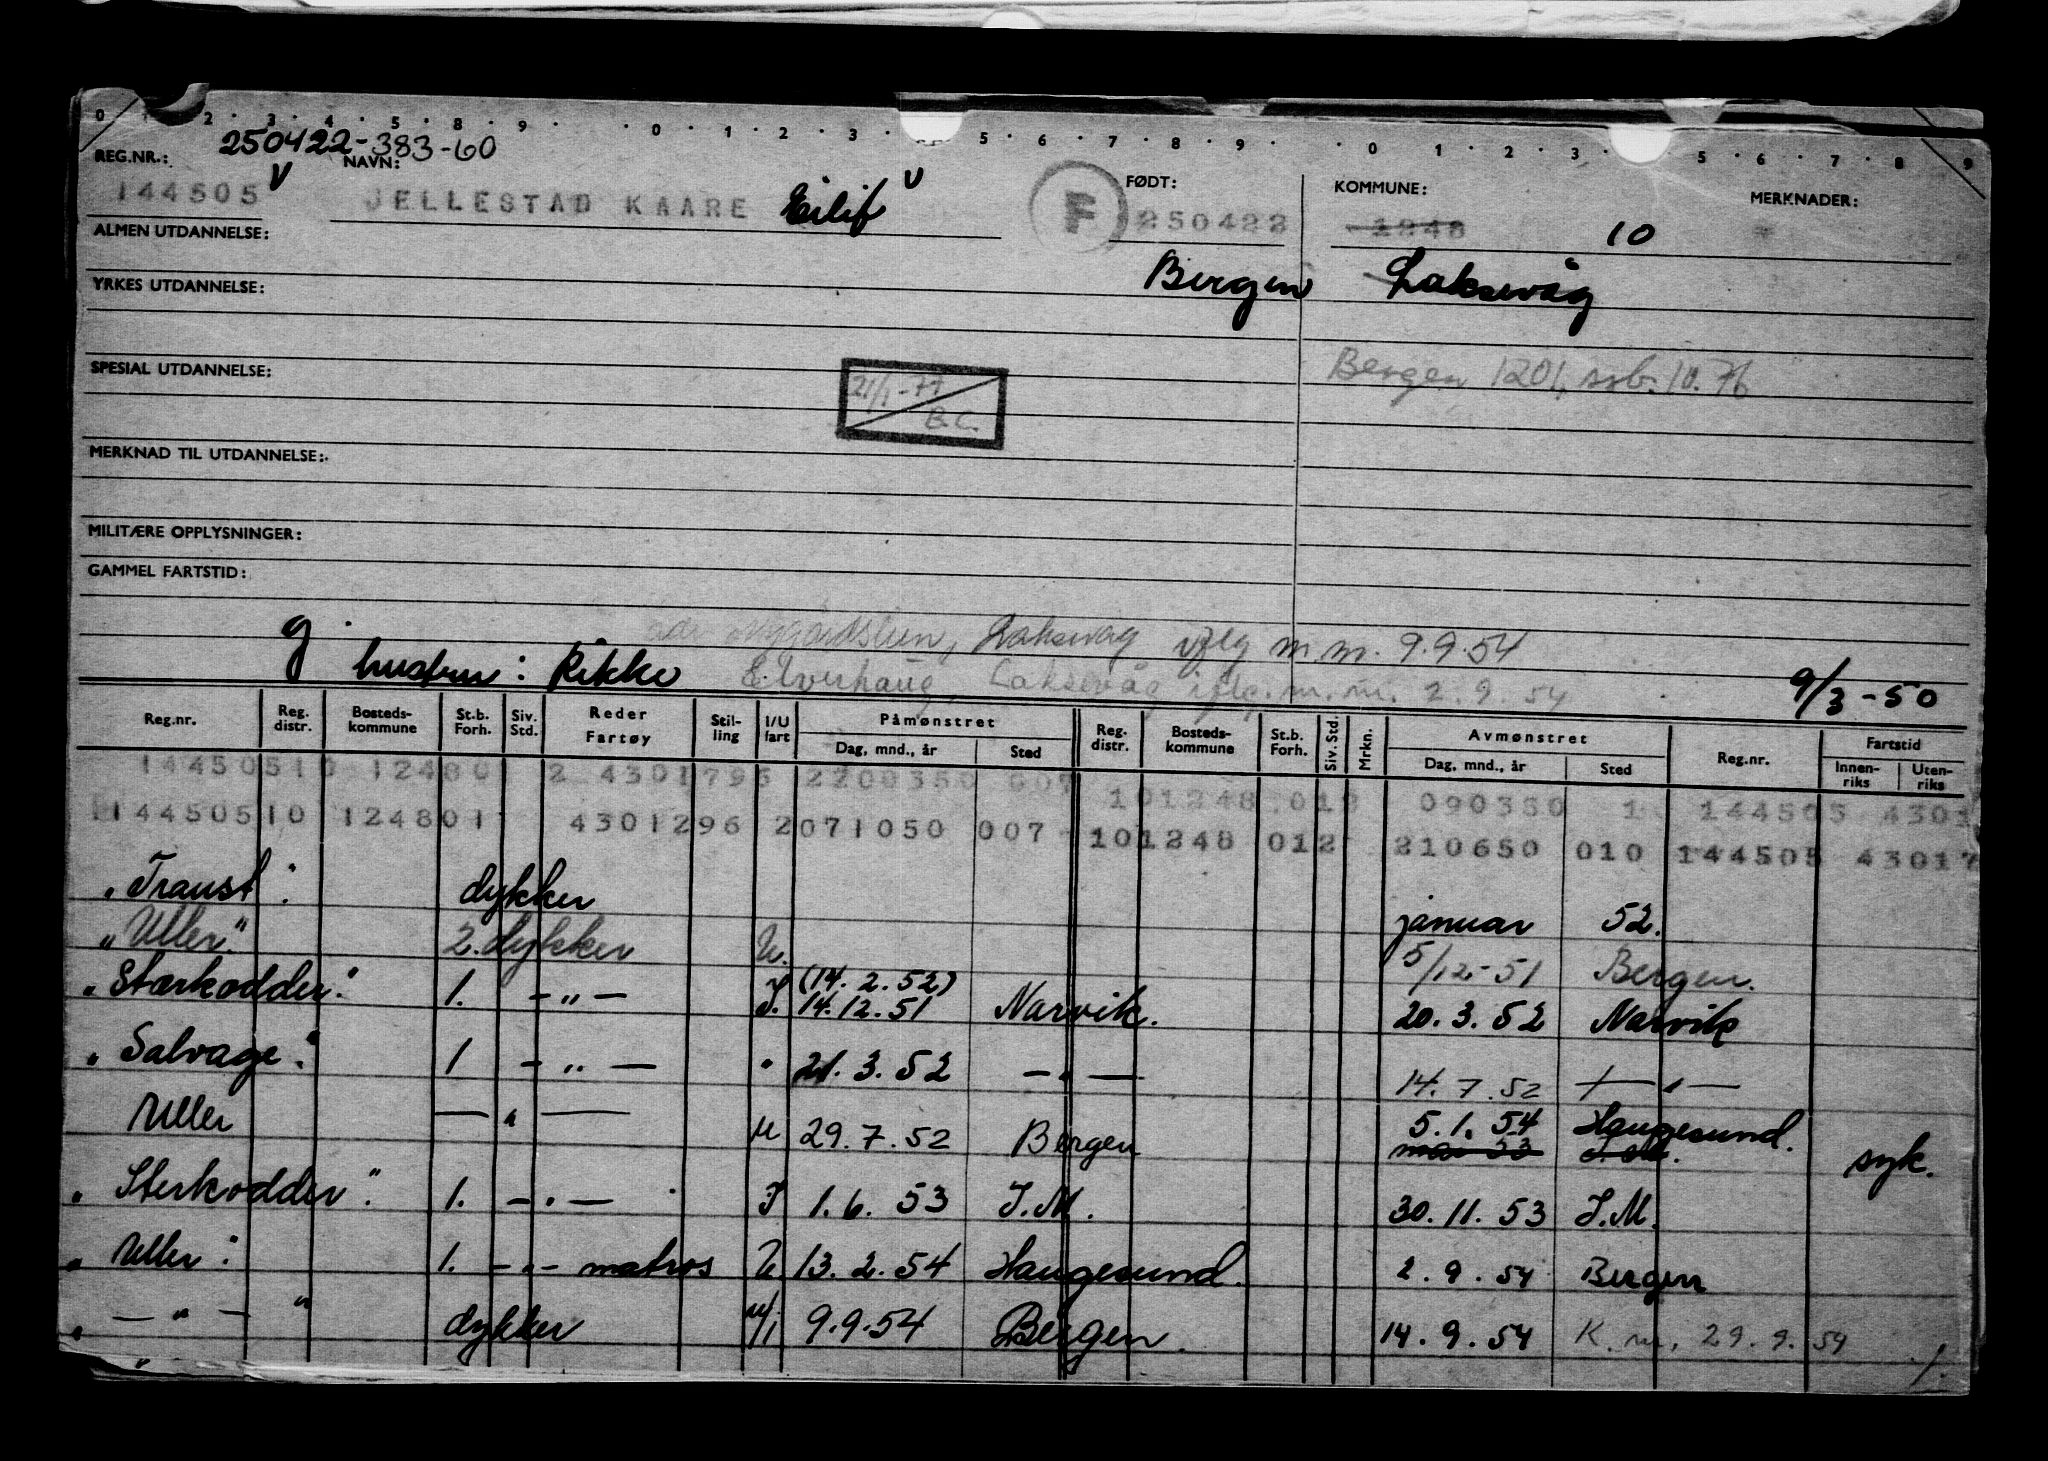 0 1 2 3 4 5 8 9 0 1 2 3 5 6 7 8 9 0 1 2 3 5 6 7 8 9
250422-383-60
REG.NR.: NAVN: FØDT: KOMMUNE: MERKNADER:
144505 V JELLESTAD KAARE Eilif V F 250422 1248 10
ALMEN UTDANNELSE:
Bergen Laksevåg
YRKES UTDANNELSE:
Bergen 1201, 10.76
SPESIAL UTDANNELSE:
21/1-77
B.C.
MERKNAD TIL UTDANNELSE:
MILITÆRE OPPLYSNINGER:
GAMMEL FARTSTID:
g. Laksevåg iflg m.m. 9.9.54
hustru: Rikke Elverhaug, Laksevåg iflg. m.m. 2.9.54 9/3-50
Reg.nr. Reg. distr. Bosteds-kommune St.b. Forh. Siv. Std. Reder Fartøy Stil-ling I/U fart Påmønstret Dag, mnd., år Sted Reg. distr. Bosteds-kommune St.b. Forh. Siv. Std. Mrkn. Avmønstret Dag, mnd., år Sted Reg.nr. Fartstid Innen-riks Uten-riks
144505 10 12480 2 4301796 2200350 007 101248 012 090350 1 144505 4301
144505 10 124801 4301296 2071050 007 101248 012 210650 010 144505 43017
"Traust". dykker januar 52.
"Uller". 2. dykker U. 5/12-51 Bergen.
"Starkodder". 1. -"- I. (14.2.52) 14.12.51 Narvik. 20.3.52 Narvik
"Salvage". 1 -"- " 21.3.52 -"- 14.7.52 -"-
Uller -"- U 29.7.52 Bergen 5.1.54 Haugesund. syk.
"Sterkodder". 1. -"- I 1.6.53 I.M. 30.11.53 I.M.
"Uller". 1. -"- matros U 13.2.54 Haugesund. 2.9.54 Bergen
" -"- " dykker U/I 9.9.54 Bergen. 14.9.54 K.m. 29.9.54 1.